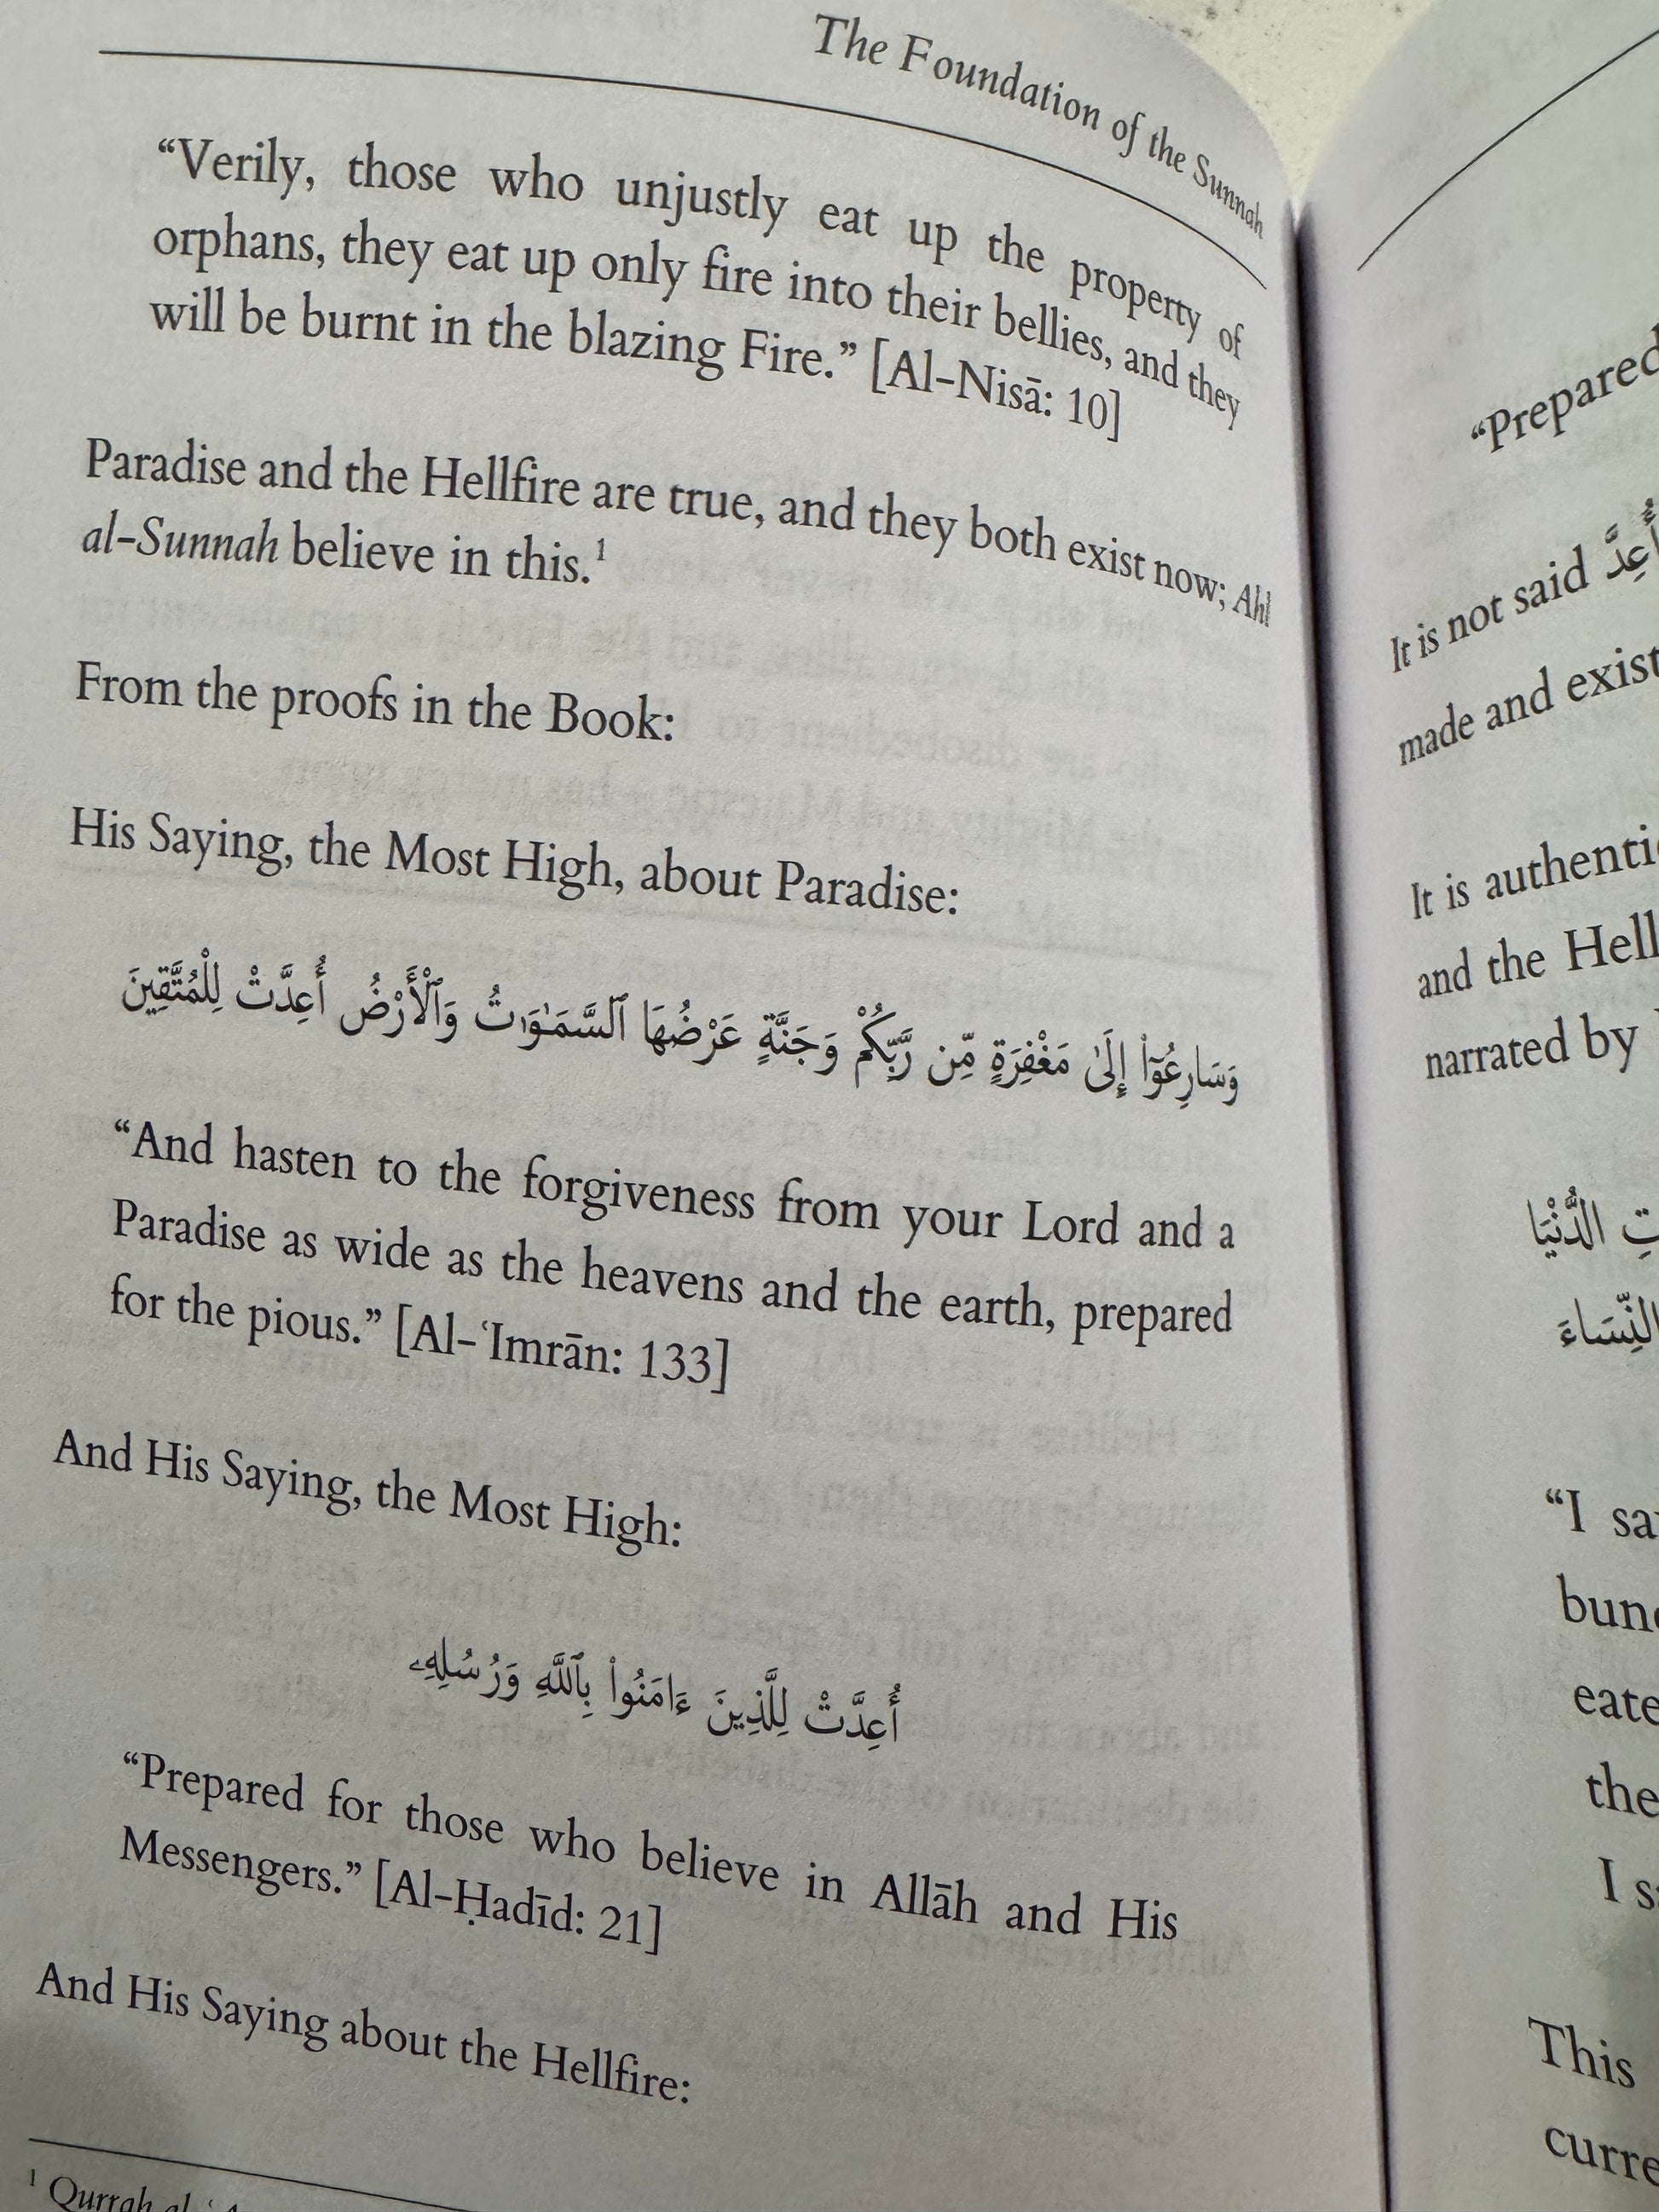 The Foundation of the Sunnah
“Verily, those who unjustly eat up the property of
orphans, they eat up only fire into their bellies, and they
will be burnt in the blazing Fire.” [Al-Nisā: 10]
Paradise and the Hellfire are true, and they both exist now; Ahl
al-Sunnah believe in this.¹
From the proofs in the Book:
His Saying, the Most High, about Paradise:
وَسَارِعُوٓا۟ إِلَىٰ مَغْفِرَةٍ مِّن رَّبِّكُمْ وَجَنَّةٍ عَرْضُهَا ٱلسَّمَـٰوَٰتُ وَٱلْأَرْضُ أُعِدَّتْ لِلْمُتَّقِينَ
“And hasten to the forgiveness from your Lord and a
Paradise as wide as the heavens and the earth, prepared
for the pious.” [Al-ʿImrān: 133]
And His Saying, the Most High:
أُعِدَّتْ لِلَّذِينَ ءَامَنُوا۟ بِٱللَّهِ وَرُسُلِهِۦ
“Prepared for those who believe in Allāh and His
Messengers.” [Al-Ḥadīd: 21]
And His Saying about the Hellfire:
¹ Qurrah al-
“Prepared
It is not said أُعِدَّ
made and exist
It is
and the
narrated by
الدُّنْيَا
النِّسَاءَ
“I
the
I
This